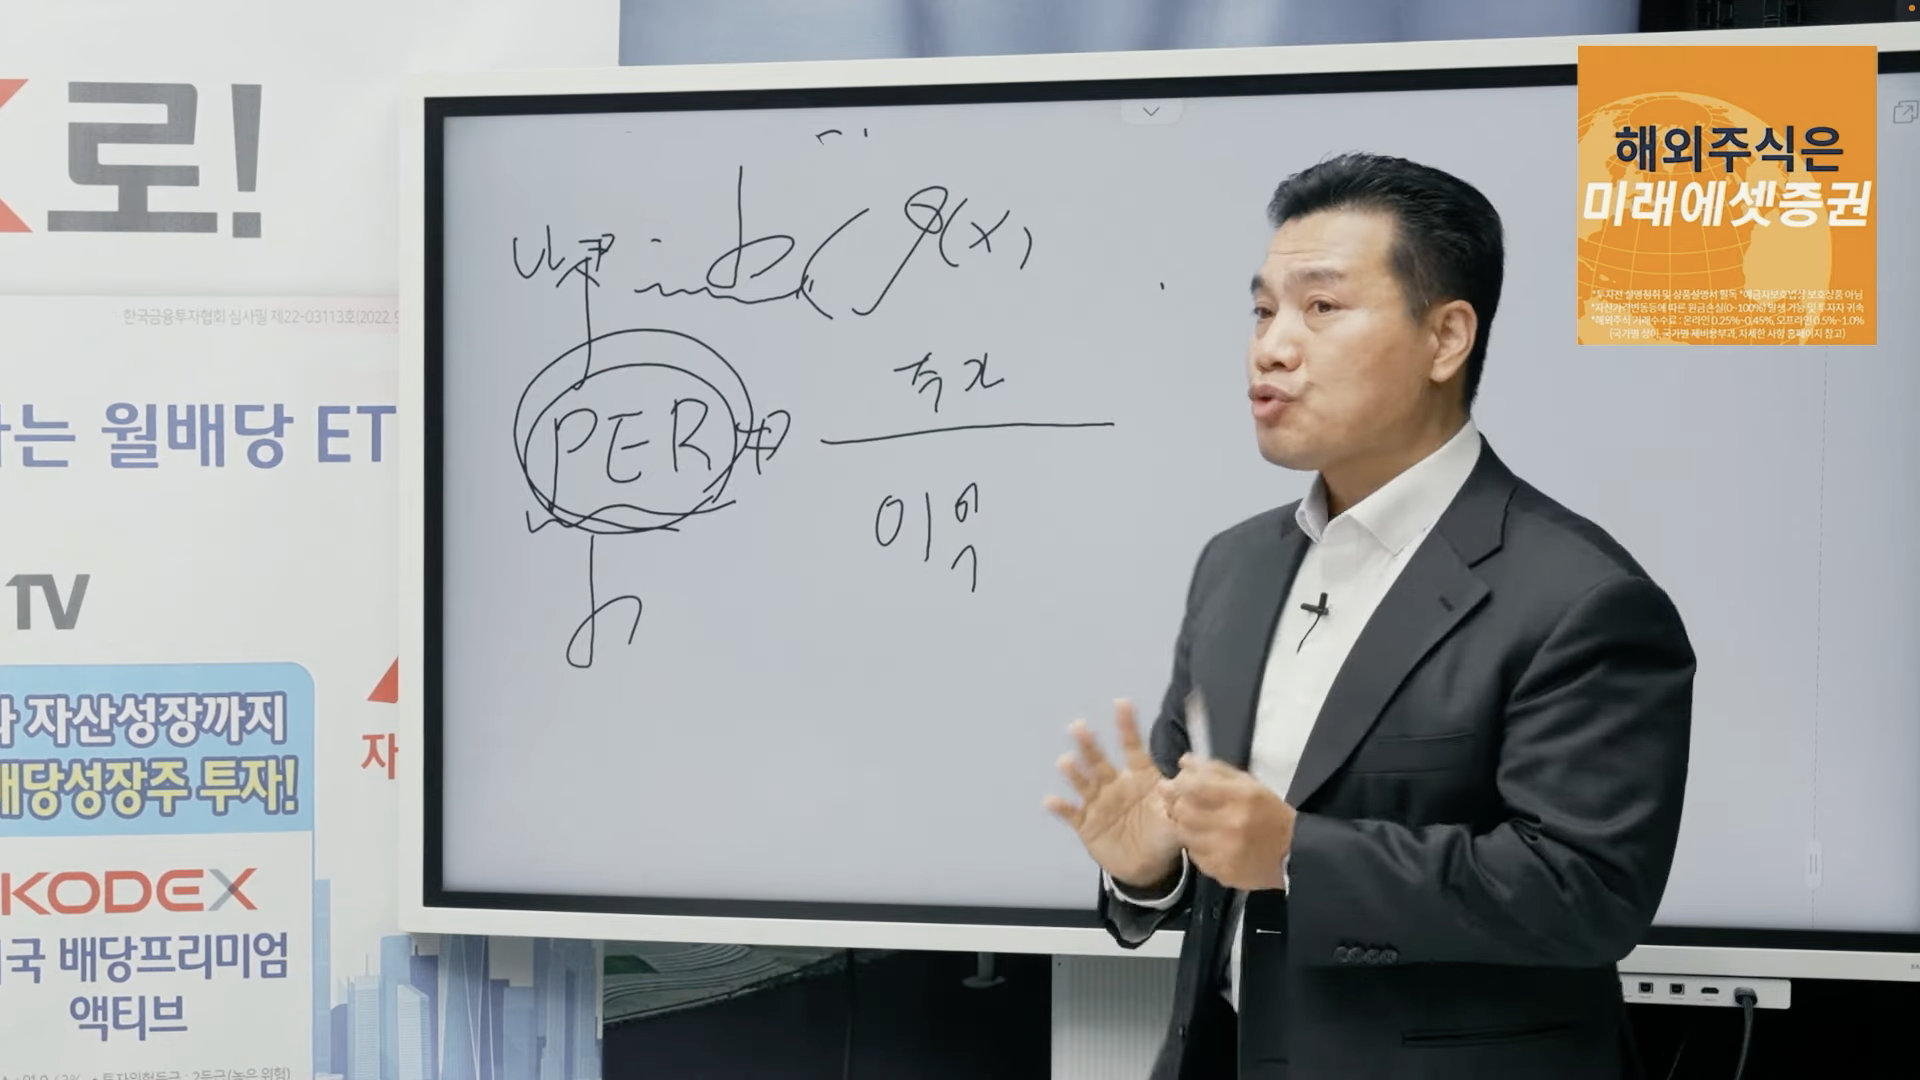 로!
한국금융투자협회 심사필 제22-03113호(2022.9
는 월배당 ET
TV
자산성장까지
배당성장주 투자!
자
KODEX
미국 배당프리미엄
액티브
PER
주가
이익
(x)
해외주식은
미래에셋증권
*투자전 설명청취 및 상품설명서 필독 *예금자보호법상 보호상품 아님
*자산가격변동등에 따른 원금손실(0~100%) 발생 가능 및 투자자 귀속
*해외주식 거래수수료 : 온라인 0.25%~0.45%, 오프라인 0.5%~1.0%
(국가별 상이, 국가별 제비용부과, 자세한 사항 홈페이지 참고)
투자위험등급 : 2등급(높은 위험)